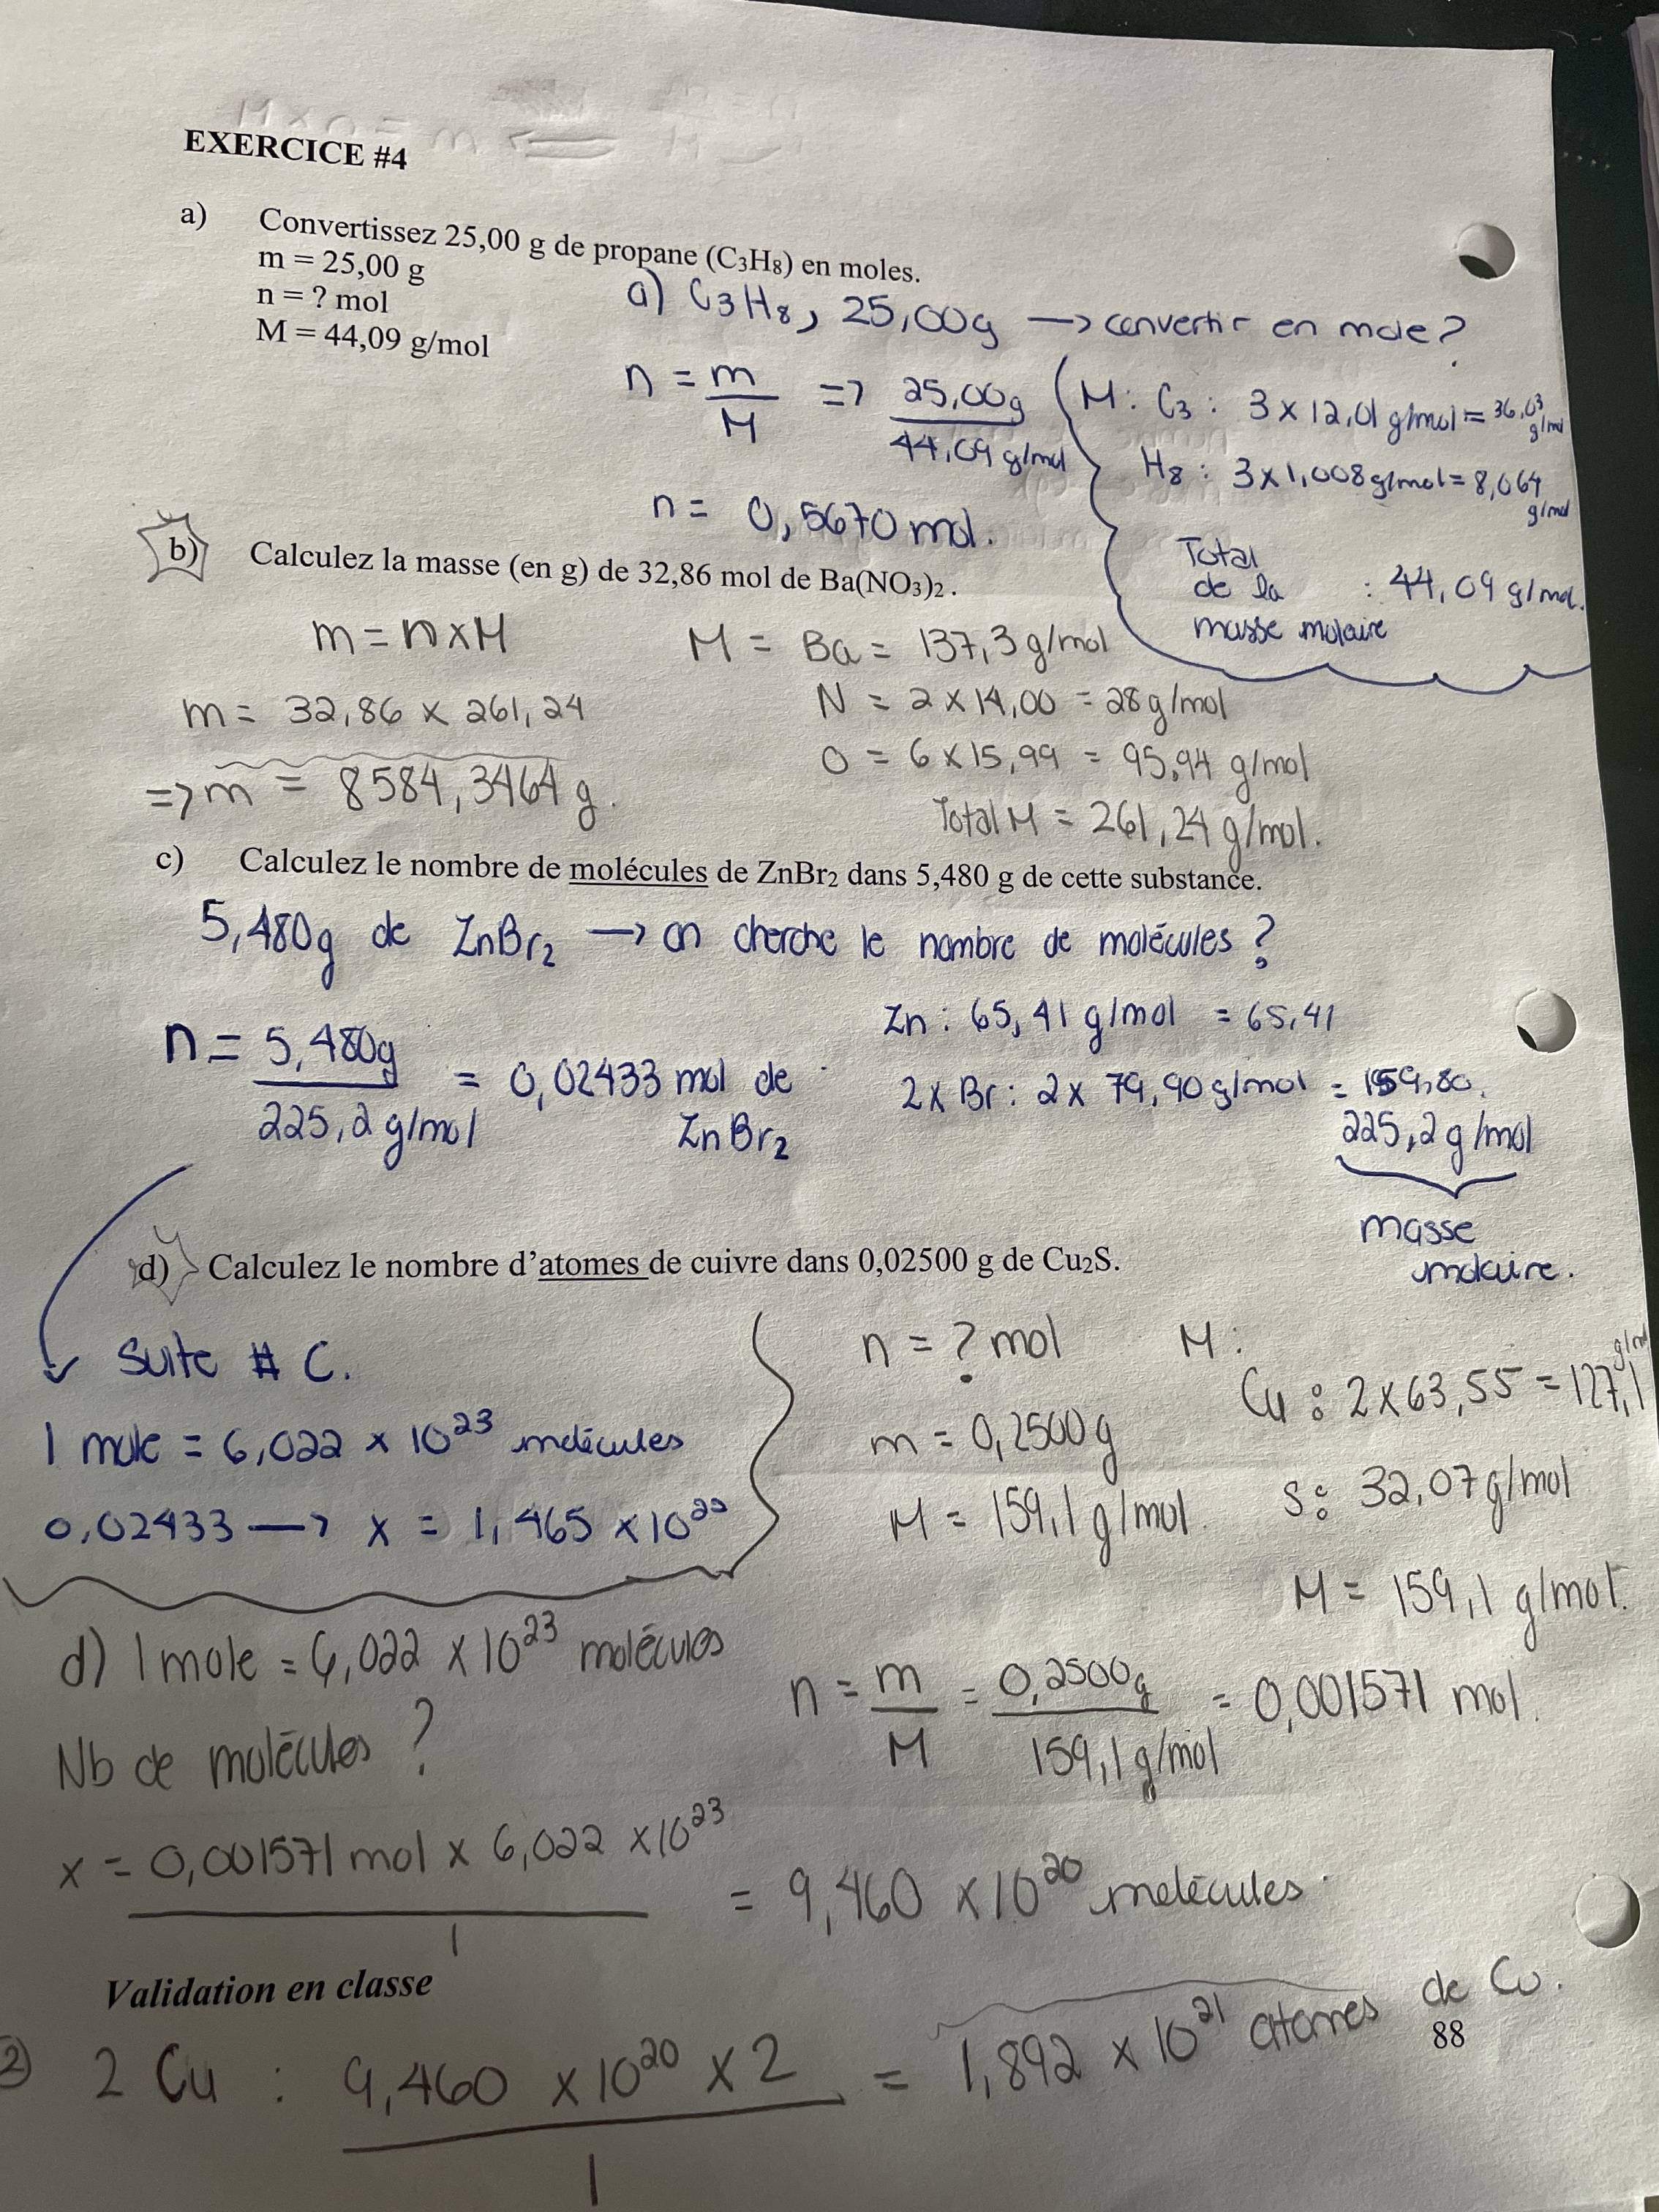 EXERCICE #4
a) Convertissez 25,00 g de propane (C3H8) en moles.
m = 25,00 g
n = ? mol
M = 44,09 g/mol
a) C3H8, 25,00g —> convertir en mole?
n = m/M => 25,00g/44,09 g/mol
n = 0,5670 mol.
M: C3: 3 x 12,01 g/mol = 36,03 g/mol
H8: 3 x 1,008 g/mol = 8,064 g/mol
Total de la masse molaire : 44,09 g/mol.
b) Calculez la masse (en g) de 32,86 mol de Ba(NO3)2.
m = n x M
m = 32,86 x 261,24
=> m = 8584,3464 g.
M = Ba = 137,3 g/mol
N = 2 x 14,00 = 28 g/mol
O = 6 x 15,99 = 95,94 g/mol
Total M = 261,24 g/mol.
c) Calculez le nombre de molécules de ZnBr2 dans 5,480 g de cette substance.
5,480g de ZnBr2 —> on cherche le nombre de molécules ?
n = 5,480g/225,2 g/mol = 0,02433 mol de ZnBr2
Zn : 65,41 g/mol = 65,41
2 x Br : 2 x 79,90 g/mol = 159,80.
225,2 g/mol
masse molaire.
d) Calculez le nombre d'atomes de cuivre dans 0,02500 g de Cu2S.
Suite # C.
1 mole = 6,022 x 10^23 molécules
0,02433 —> x = 1,465 x 10^22
n = ? mol
m = 0,2500g
M = 159,1 g/mol.
M :
Cu : 2 x 63,55 = 127,1 g/mol
S : 32,07 g/mol
M = 159,1 g/mol.
d) 1 mole = 6,022 x 10^23 molécules
Nb de molécules ?
n = m/M = 0,2500g/159,1 g/mol = 0,001571 mol.
x = 0,001571 mol x 6,022 x 10^23/1 = 9,460 x 10^20 molécules.
Validation en classe
2) 2 Cu : 9,460 x 10^20 x 2/1 = 1,892 x 10^21 atomes de Cu.
88